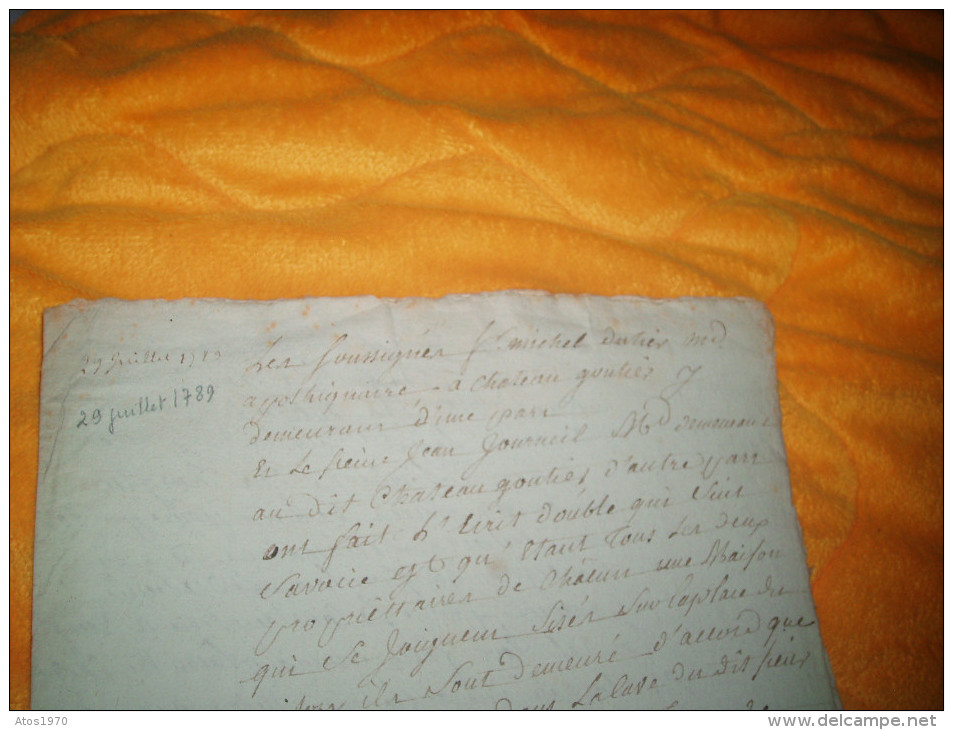 29 Juillet 1789
29 juillet 1789
Les Soussignés Sr. michel md
apothiquaire a Chateau gontier y
demeurant d'une part
Et Le sieur Jean Journeil Md demeurant
au dit Chateaugontier d'autre part
ont fait L' Ecrit double qui Suit
Savoir est qu' Etant Tous Les deux
propriettaires de Chacun une Maison
qui Se Joignent Sises Sur la place du
ils Sont Demeuré d'accord que
dans La Cave du dit sieur
Atos1970
delcampe.net